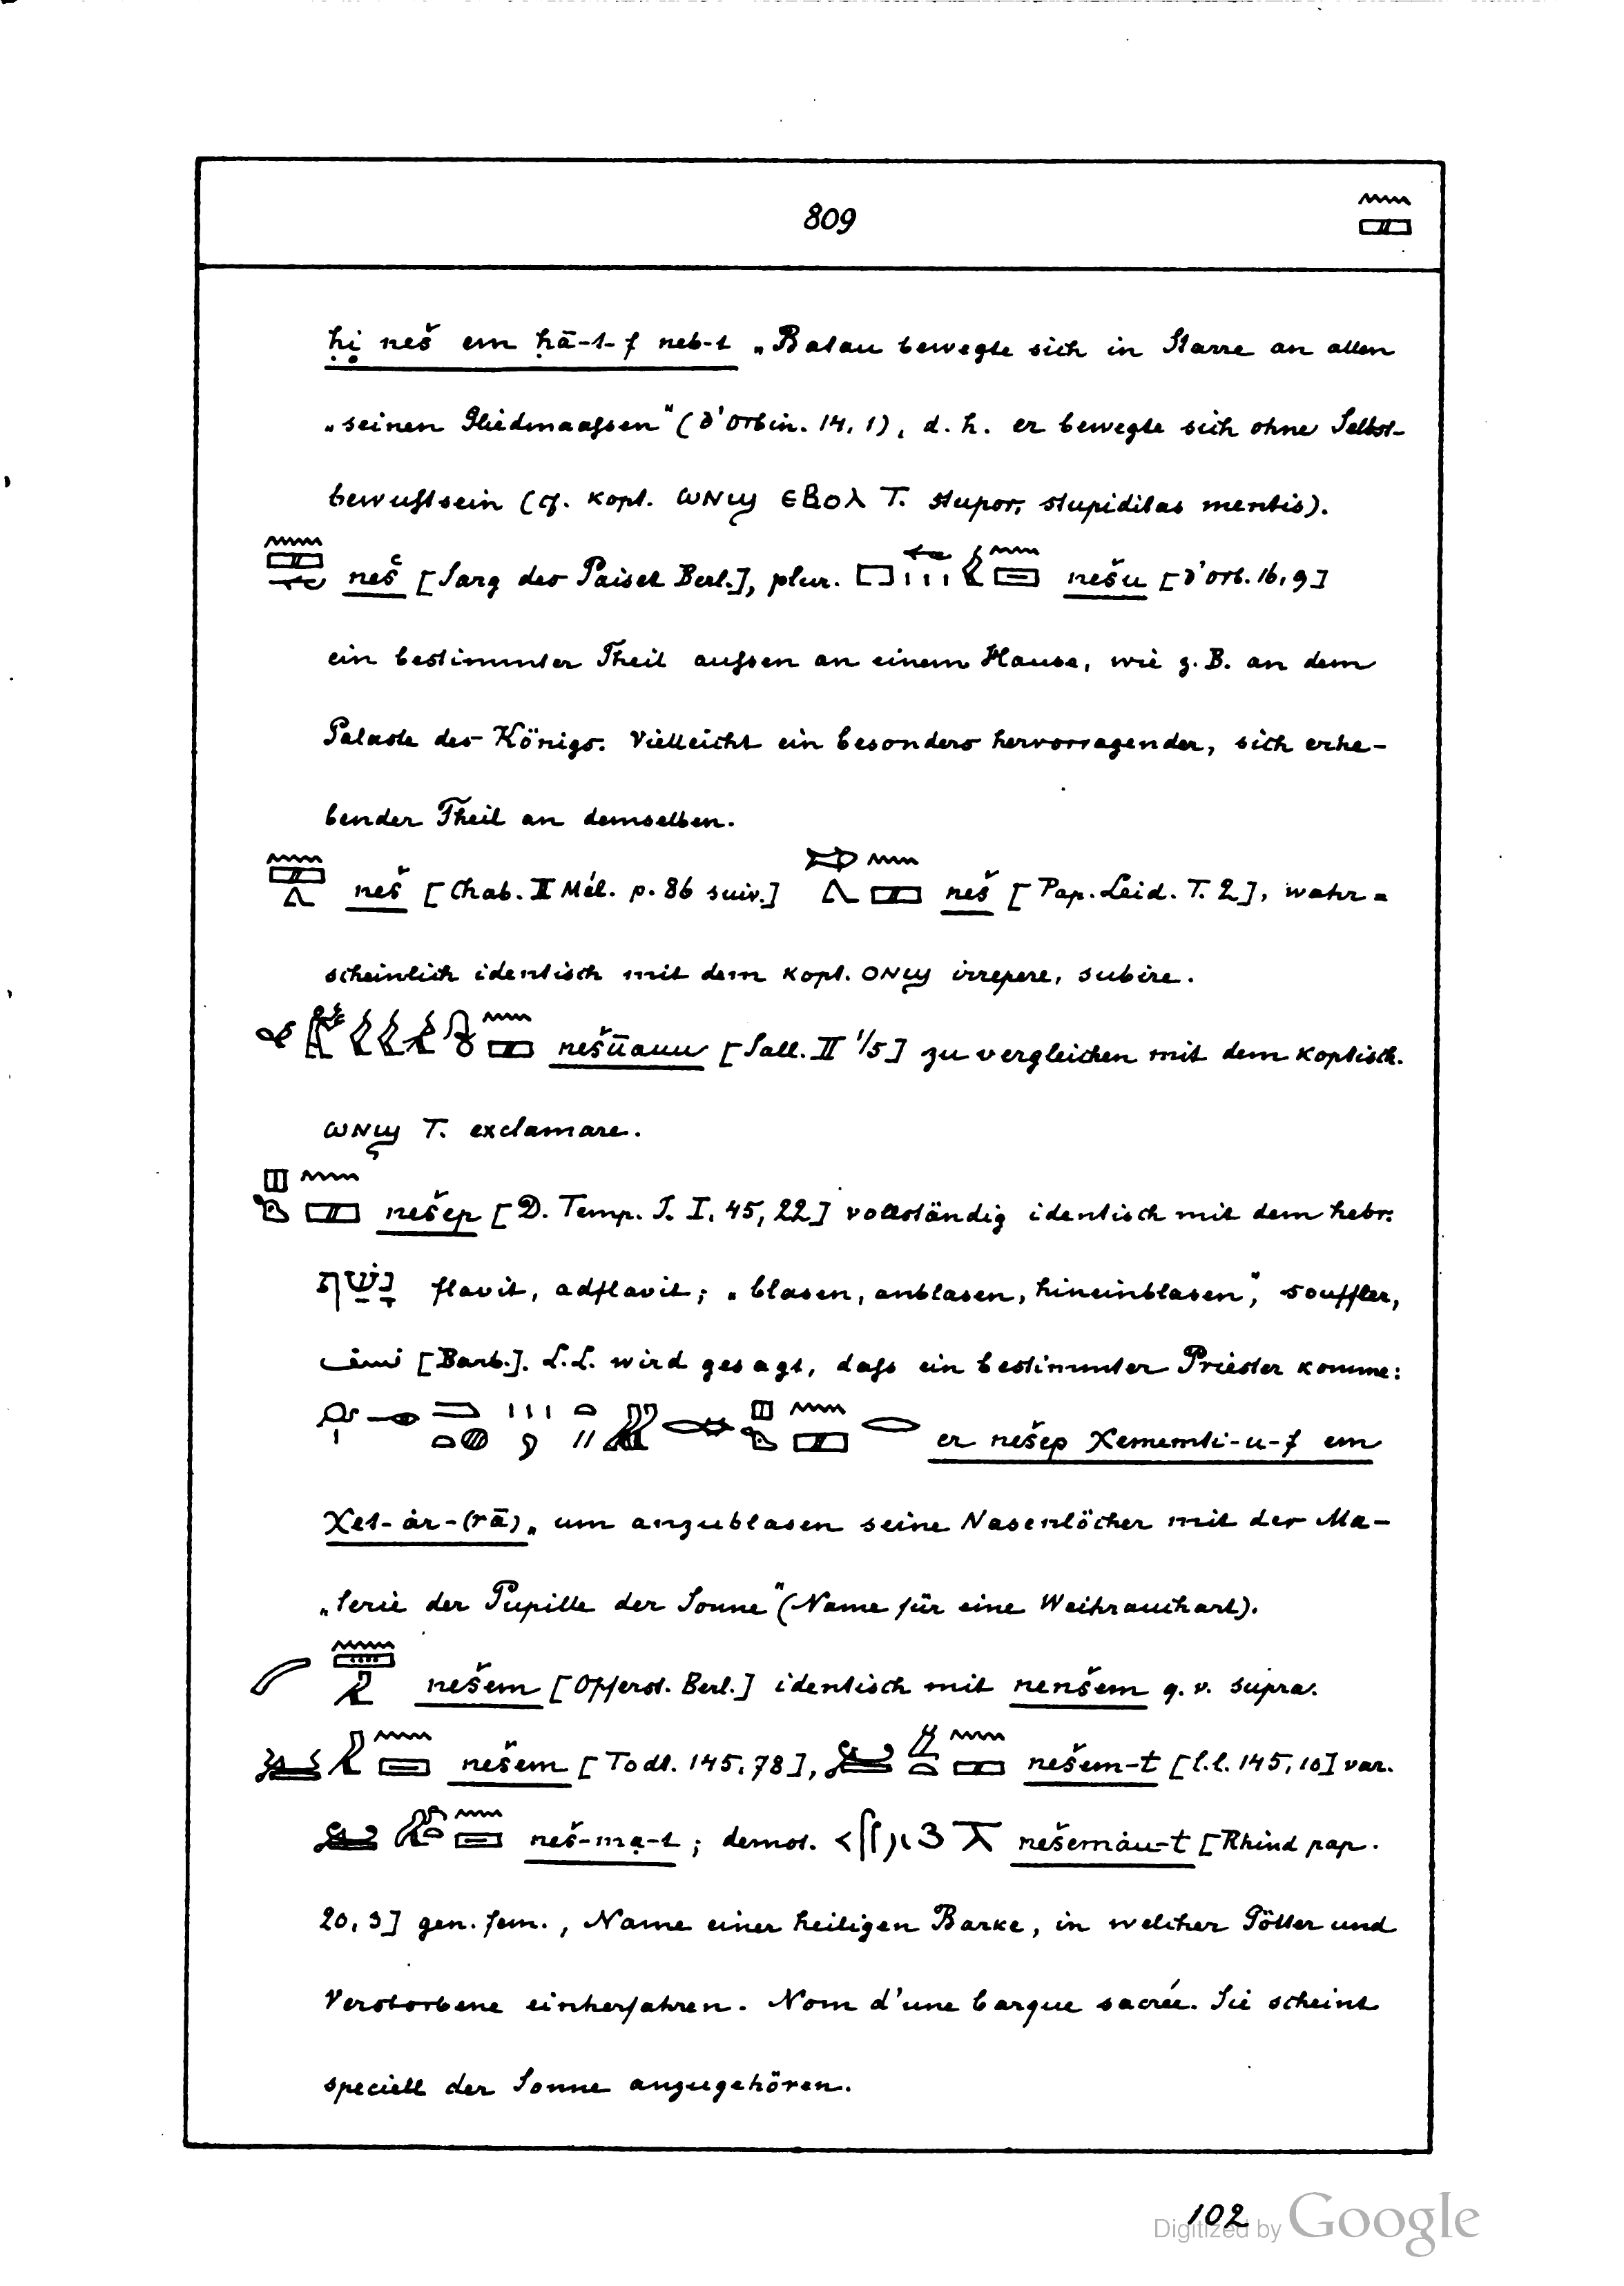 809
ḥi̩ neš em ḥā-t-f neb-t „Batau bewegte sich in Starre an allen
„seinen Gliedmaaßen“ (d'Orbin. 14,1), d. h. er bewegte sich ohne Selbst-
bewußtsein (cf. kopt. ⲱⲛϣ ⲉⲃⲟⲗ T. stupor, stupiditas mentis).
neš [Sarg des Paiset Berl.], plur. nešu [d'Orb. 16,9]
ein bestimmter Theil aussen an einem Hause, wie z. B. an dem
Palaste des Königs. Vielleicht ein besonders hervorragender, sich erhe-
bender Theil an demselben.
neš [Chab. II Mél. p. 86 suiv.] neš [Pap. Leid. T. 2], wahr-
scheinlich identisch mit dem kopt. ⲟⲛϣ irrepere, subire.
nešūauu [Sall. II 1/5] zu vergleichen mit dem koptisch.
ⲱⲛϣ T. exclamare.
nešep [D. Temp. J. I, 45, 22] vollständig identisch mit dem hebr.
נָשַׁף flavit, adflavit; „blasen, anblasen, hineinblasen“, souffler,
[Barb.]. L.L. wird gesagt, daß ein bestimmter Priester komme:
er nešep Xememti-u-f em
Xet-ȧr-(rā) „um anzublasen seine Nasenlöcher mit der Ma-
„terie der Pupille der Sonne“ (Name für eine Weihrauchart).
nešem [Opferst. Berl.] identisch mit nenšem q. v. supra.
nešem [Todt. 145, 78], nešem-t [l.l. 145, 10] var.
neš-mạ-t; demot. nešemȧu-t [Rhind pap.
20, 3] gen. fem., Name einer heiligen Barke, in welcher Götter und
Verstorbene einherfahren. Nom d'une barque sacrée. Sie scheint
speciell der Sonne anzugehören.
102
Digitized by Google